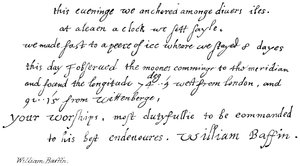 this eueninge we anchored amonge diuers iles.
at aleuen a clock we sett sayle.
we made fast to a peece of ice where we stayed 8 dayes
this day I obserued the moones comminge to the meridian
and found the longitude 74 deg west from london, and
91.15 from Wittenberge,
your worships, most dutyfullie to be commanded
to his best endeuoures. William Baffin.
William Baffin.